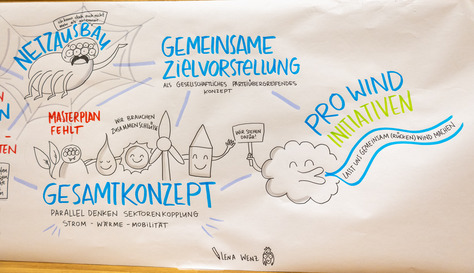 NETZAUSBAU
GEMEINSAME
ZIELVORSTELLUNG
ALS GESELLSCHAFTLICHES PARTEIÜBERGREIFENDES
KONZEPT
MASTERPLAN
FEHLT
WIR BRAUCHEN
ZUSAMMENSCHLÜSSE
WIR STEHEN
DAFÜR!
PRO WIND
INITIATIVEN
LASST UNS GEMEINSAM (RÜCKEN) WIND MACHEN
GESAMTKONZEPT
PARALLEL DENKEN SEKTORENKOPPLUNG
STROM - WÄRME - MOBILITÄT
LENA WENZ